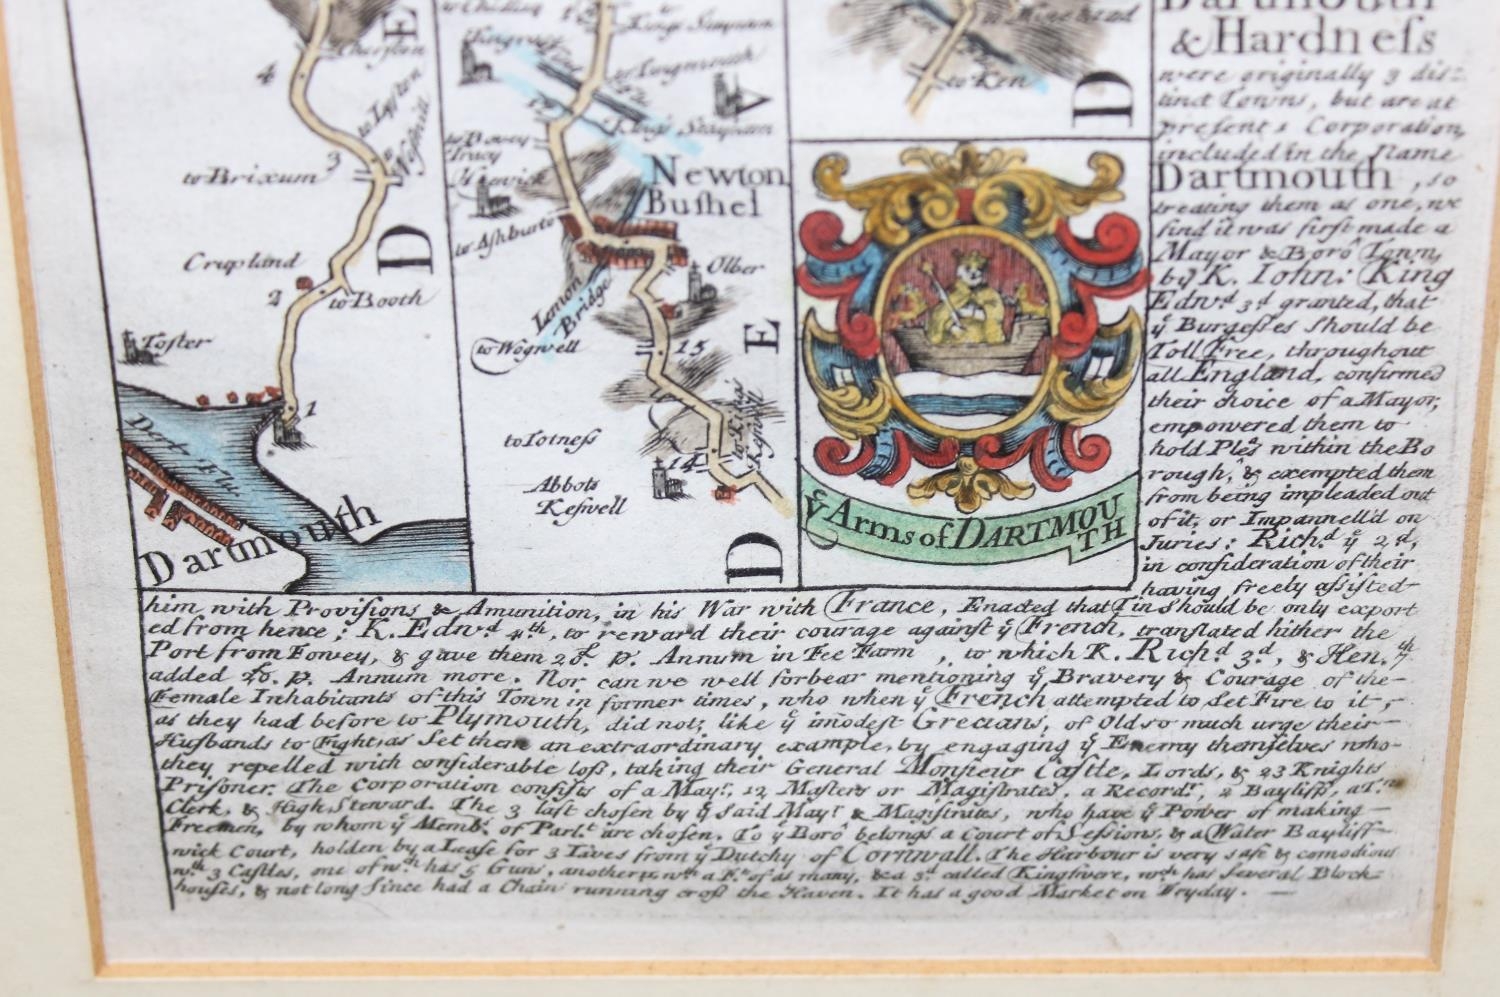 to Chidley
to
Kings Staynton
to Kingsand
E
Dartmouth
& Hardneſs
Cherſton
4
to Lyſton
to Ken
D
were originally 3 diſ=
tinct Towns, but are at
preſent 1 Corporation,
included in the Name
Dartmouth, so
treating them as one, we
find it was firſt made a
Mayor & Boro Town,
by K. Iohn: King
Edwd. 3d. granted, that
ye Burgeſſes should be
Toll Free, throughout
all England, confirmed
their choice of a Mayor,
empowered them to
hold Pleas within the Bo
rough, & exempted them
from being impleaded out
of it, or Impannell'd on
Juries: Richd. ye 2d,
in conſideration of their
having freely aſſiſted
Kings Staynton
to Bovey
Tracy
3
to Brixum
Newton
Buſhel
to Aſhburto
Crupland
2
to Booth
D
Olber
Lemon
Bridge
Toſter
to Wogwell
15
E
1
Dart Flu:
to Totneſs
14
to Kings
Keſwell
Abbots
Keſwell
Dartmouth
D
ye Arms of DARTMOU
TH
him with Proviſions & Amunition, in his War with France, Enacted that Tin should be only export
ed from hence; K. Edwd. 4th, to reward their courage against ye French, tranſlated hither the
Port from Fowey, & gave them 20£. p. Annum in Fee Farm, to which K. Richd. 3d, & Hen. 7th
added 20. p. Annum more. Nor can we well forbear mentioning ye Bravery & Courage of the
Female Inhabitants of this Town in former times, who when ye French attempted to Set Fire to it,
as they had before to Plymouth, did not, like ye imodeſt Grecians, of Old so much urge their
Huſbands to Fight, as Set them an extraordinary example, by engaging ye Enemy themſelves who
they repelled with conſiderable loſs, taking their General Monſieur Caſtle, Lords, & 23 Knights
Priſoner. The Corporation conſiſts of a Mayr, 12 Maſters or Magiſtrates, a Recordr, 2 Bayliffs, a Tn
Clerk, & High Steward. The 3 laſt choſen by ye Said Mayr & Magiſtrates, who have ye Power of making
Freemen, by whom ye Membs. of Parlt. are choſen. To ye Boro belongs a Court of Seſſions, & a Water Bayliff
wick Court, holden by a Leaſe for 3 Lives from ye Dutchy of Cornwall. The Harbour is very safe & comodious
wth. 3 Caſtles, one of wch has 5 Guns, another wth a Ft. of as many, & a 3d called Kingſwere, wch has Several Block=
houſes, & not long Since had a Chain running croſs the Haven. It has a good Market on Fryday.